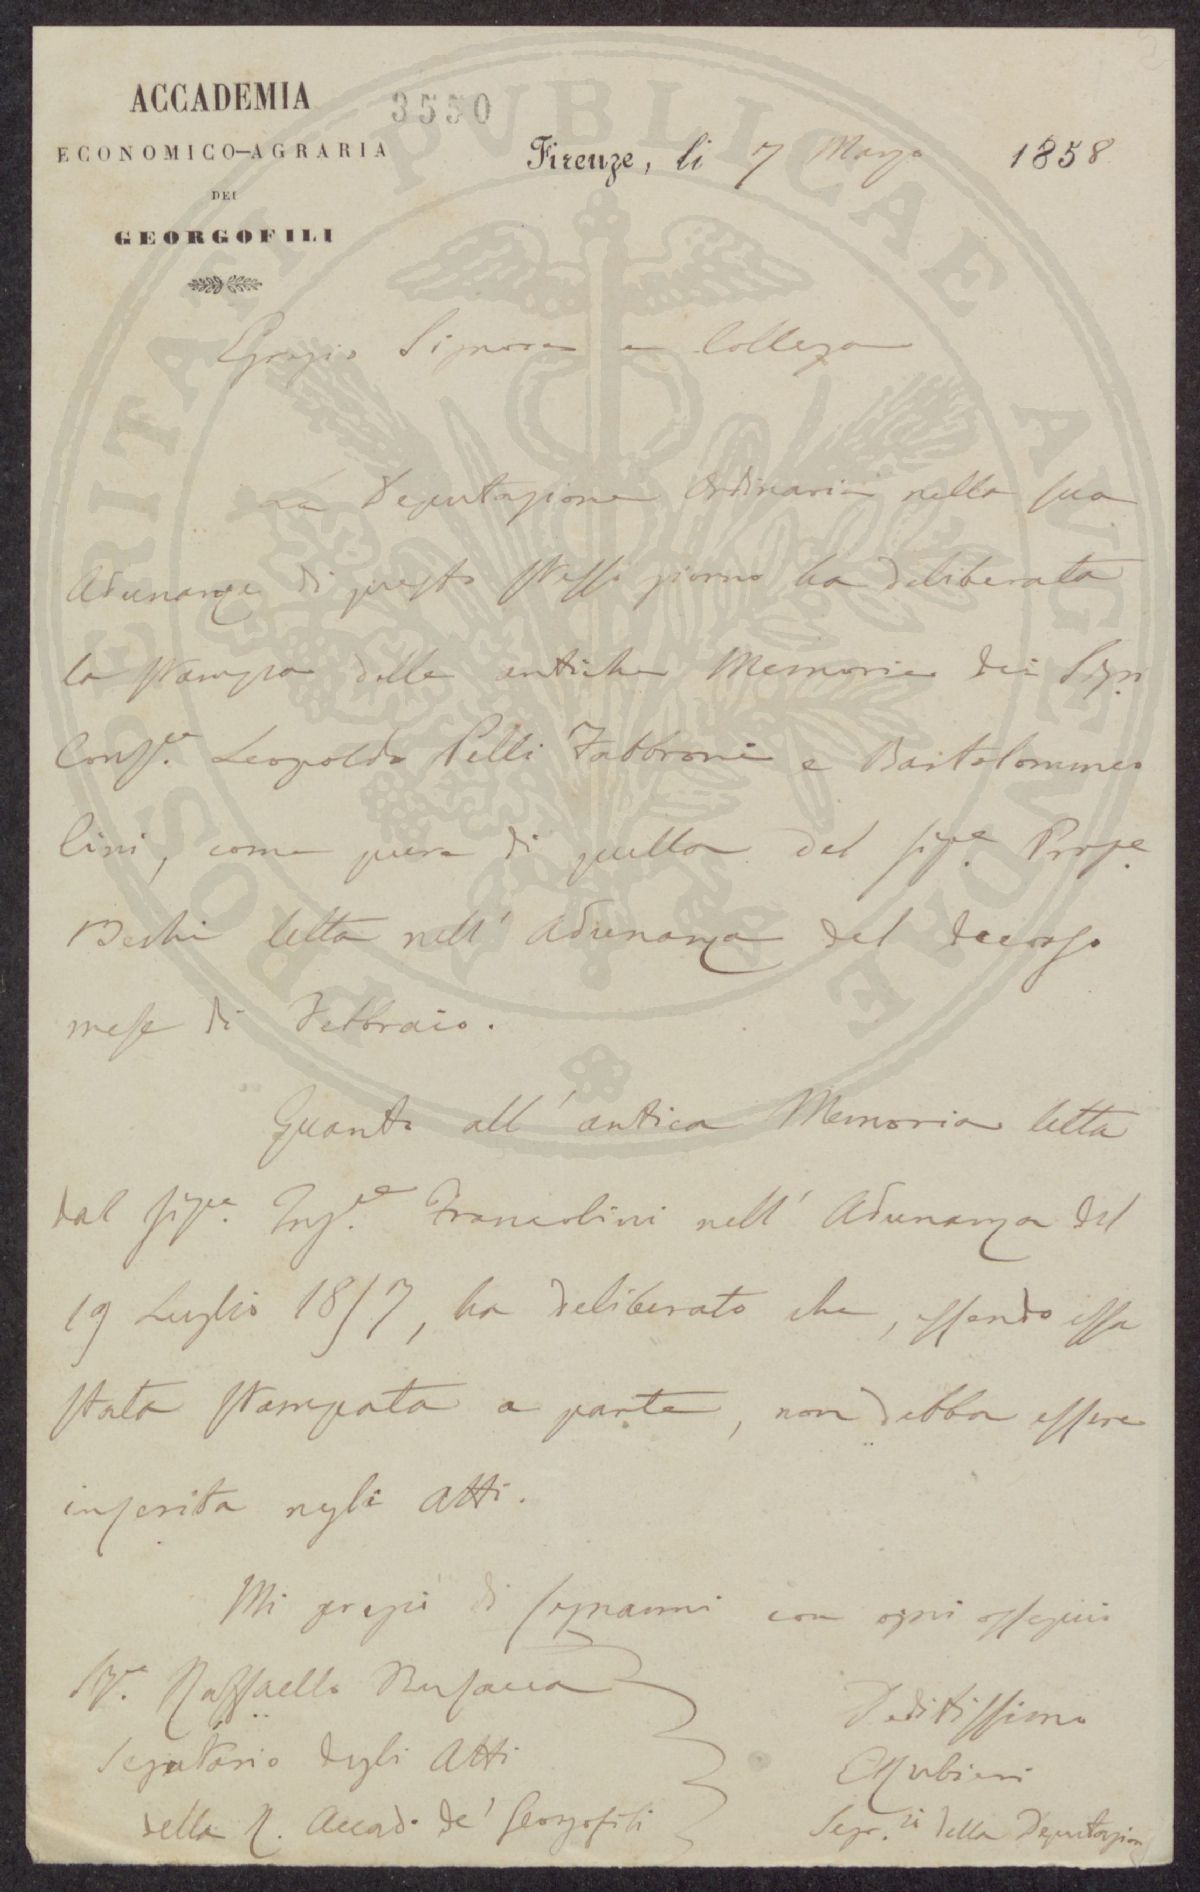 ACCADEMIA
ECONOMICO-AGRARIA
DEI
GEORGOFILI
3550
Firenze, li 7 Marzo 1858
PROSPERITATI PUBLICAE AUGENDAE
Egregio Signore e Collega
La Deputazione Ordinaria nella sua
Adunanza di questo stesso giorno ha deliberata
la stampa delle antiche Memorie dei Sigri
Consre. Leopoldo Pelli Fabbroni e Bartolommeo
lini, come pure di quella del sige. Profe.
Bechi letta nell' Adunanza del decorso
mese di Febbraio.
Quanto all' antica Memoria letta
dal sige. Inge. Francolini nell' Adunanza del
19 Luglio 1857, ha deliberato che, essendo essa
stata stampata a parte, non debba essere
inserita negli Atti.
Mi pregio di segnarmi con ogni ossequio
Sige. Raffaello Busacca
Segretario degli Atti
della R. Accad. de' Georgofili
Deditissimo
Rubieri
Segr.io della Deputazione